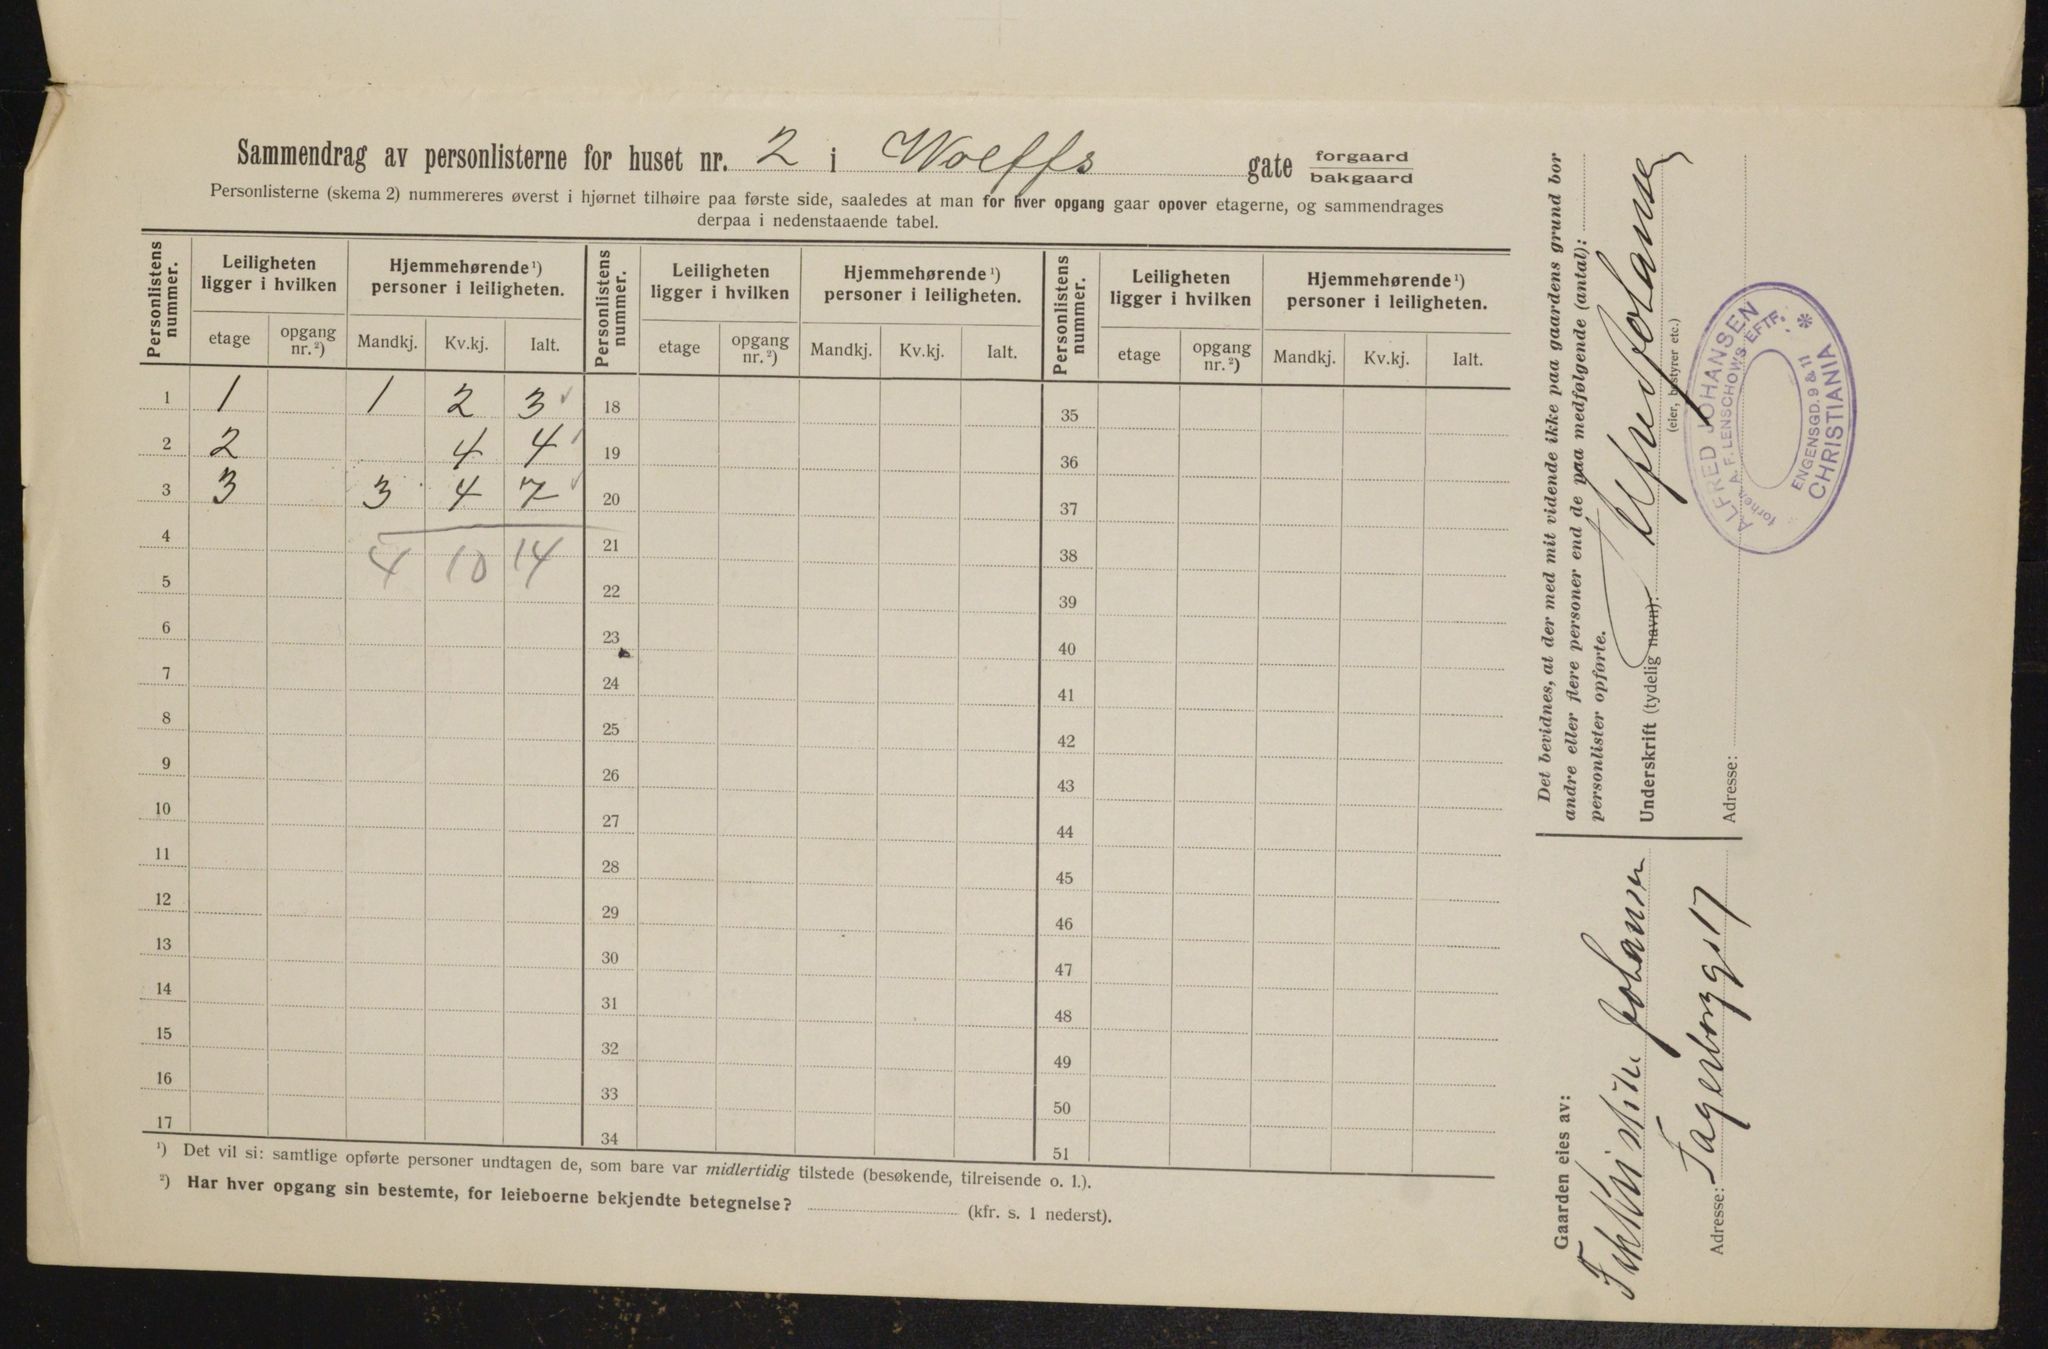 Sammendrag av personlisterne for huset nr. 2 i Wolffs gate forgaard bakgaard
Personlisterne (skema 2) nummereres øverst i hjørnet tilhøire paa første side, saaledes at man for hver opgang gaar opover etagerne, og sammendrages
derpaa i nedenstaaende tabel.
Personlistens nummer. Leiligheten ligger i hvilken Hjemmehørende ¹) personer i leiligheten. Personlistens nummer. Leiligheten ligger i hvilken Hjemmehørende ¹) personer i leiligheten. Personlistens nummer. Leiligheten ligger i hvilken Hjemmehørende ¹) personer i leiligheten.
etage opgang nr. ²) Mandkj. Kv.kj. Ialt. etage opgang nr. ²) Mandkj. Kv.kj. Ialt. etage opgang nr. ²) Mandkj. Kv.kj. Ialt.
1 1 1 2 3 18 35
2 2 4 4 19 36
3 3 3 4 7 20 37
4 4 10 14 21 38
5 22 39
6 23 40
7 24 41
8 25 42
9 26 43
10 27 44
11 28 45
12 29 46
13 30 47
14 31 48
15 32 49
16 33 50
17 34 51
¹) Det vil si: samtlige opførte personer undtagen de, som bare var midlertidig tilstede (besøkende, tilreisende o. l.).
²) Har hver opgang sin bestemte, for leieboerne bekjendte betegnelse? (kfr. s. 1 nederst).
Det bevidnes, at der med mit vidende ikke paa gaardens grund bor
andre eller flere personer end de paa medfølgende (antal):
personlister opførte.
Underskrift (tydelig navn): Alfred Johansen
(eier, bestyrer etc.)
Adresse:
ALFRED JOHANSEN
forhen A. F. LENSCHOWS EFTF.
ENGENSGD. 9 & 11
CHRISTIANIA
Gaarden eies av:
Johansen
Adresse: Fagerborggt 17